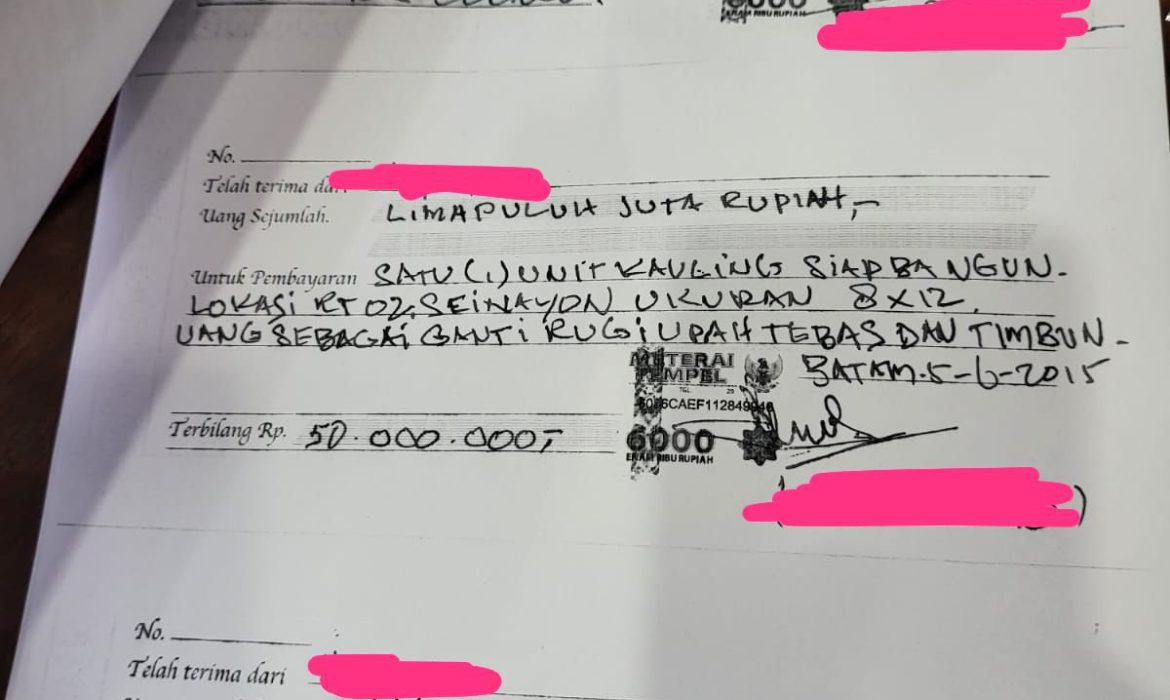 6000
ENAM RIBU RUPIAH
No.
Telah terima dari
Uang Sejumlah. LIMAPULUH JUTA RUPIAH,-
Untuk Pembayaran SATU (1) UNIT KAVLING SIAP BANGUN.
LOKASI RT 02, SEINAYON UKURAN 8 X 12,
UANG SEBAGAI GANTI RUGI UPAH TEBAS DAN TIMBUN -
METERAI
TEMPEL
BATAM. 5-6-2015
6000
ENAM RIBU RUPIAH
Terbilang Rp. 50.000.000,-
No.
Telah terima dari